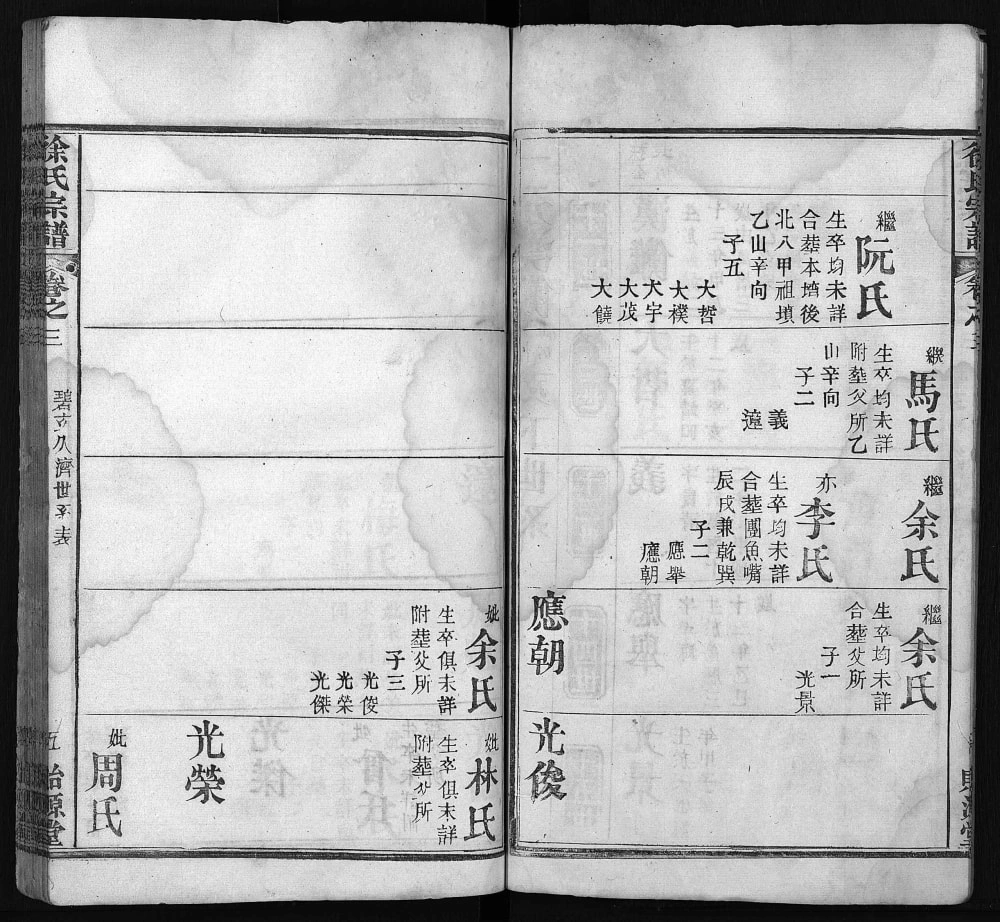 徐氏宗譜
繼
阮氏
生卒均未詳
合塟本墳後
北八甲祖墳
乙山辛向
子五
大哲
大樸
大宇
大茂
大饒
繼
馬氏
生卒均未詳
附塟父所乙
山辛向
子二
義
蓬
繼
余氏
亦
李氏
生卒均未詳
合塟團魚嘴
辰戌兼乾巽
子二
應舉
應朝
繼
余氏
生卒均未詳
合塟父所
子一
光景
應朝
光俊
妣
余氏
生卒俱未詳
附塟父所
子三
光俊
光榮
光傑
妣
林氏
生卒俱未詳
附塟父所
光榮
妣
周氏
徐氏宗譜
卷之三
碧立公濟世系表
五
貽源堂